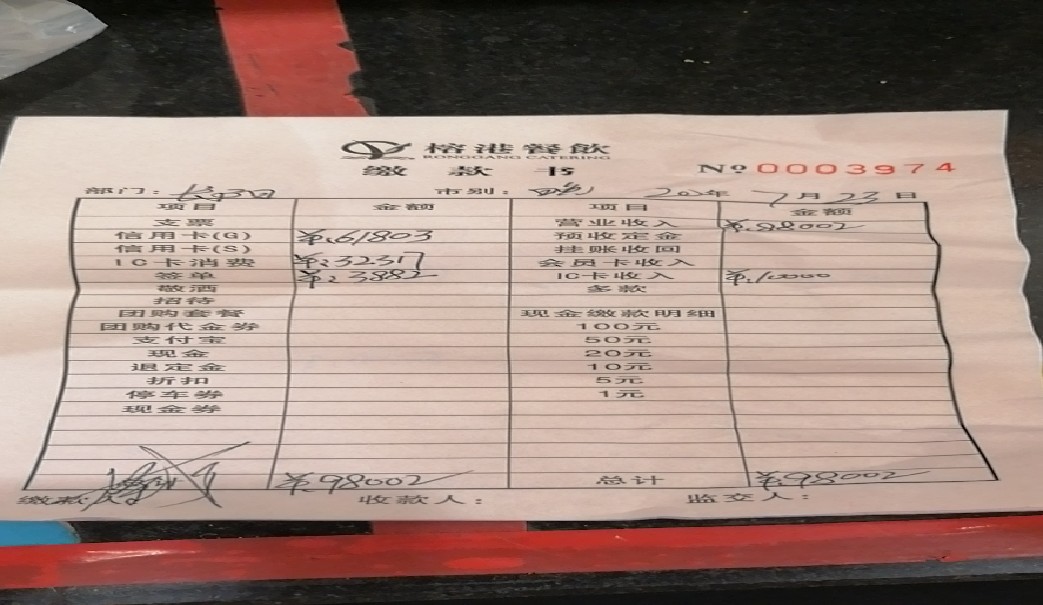 榕港餐飲
RONGGANG CATERING
缴款书 № 0003974
部门： 市别： 年 7月23日
项目 金额 项目 金额
支票 营业收入 ¥:98002
信用卡(G) ¥:61803 预收定金
信用卡(S) 挂账收回
IC卡消费 ¥:32317 会员卡收入
签单 ¥:3882 IC卡收入
敬酒 多款
招待
团购套餐 现金缴款明细
团购代金券 100元
支付宝 50元
现金 20元
退定金 10元
折扣 5元
停车券 1元
现金券
¥:98002 总计 ¥:98002
缴款人： 收款人： 监交人：